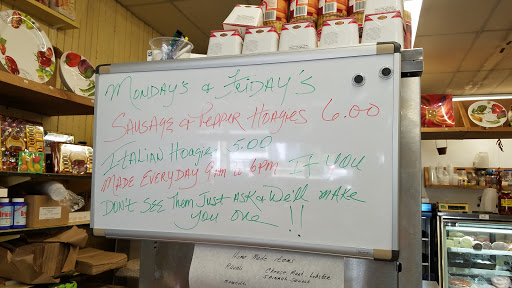 MONDAY'S & FRIDAY'S
SAUSAGE & PEPPER HOAGIES 6.00
ITALIAN HOAGIE 5.00
MADE EVERYDAY 9AM to 6PM IF YOU
DON'T SEE THEM JUST ASK & WE'LL MAKE
YOU ONE !!
Home Made Items